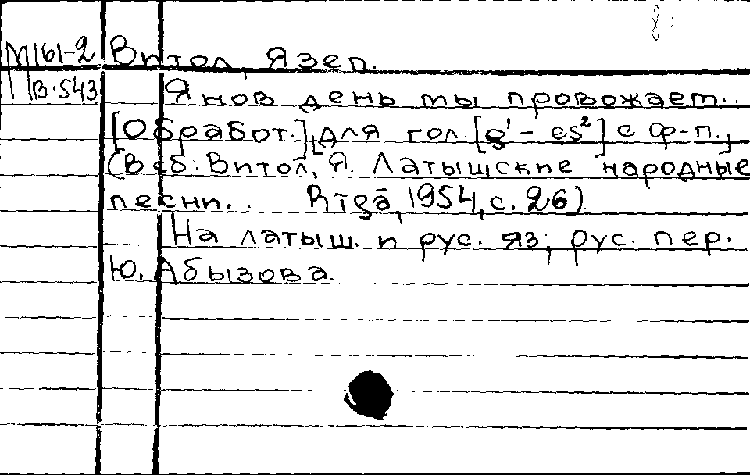 М161-2 Витол, Язеп.
В.543 Янов день мы провожает..
[Обработ.] для гол. [g¹ - es²] с ф-п.,
(В сб. Витол, Я. Латышские народные
песни.. Rīgā, 1954, с. 26)
На латыш. и рус. яз; рус. пер.
Ю. Абызова.